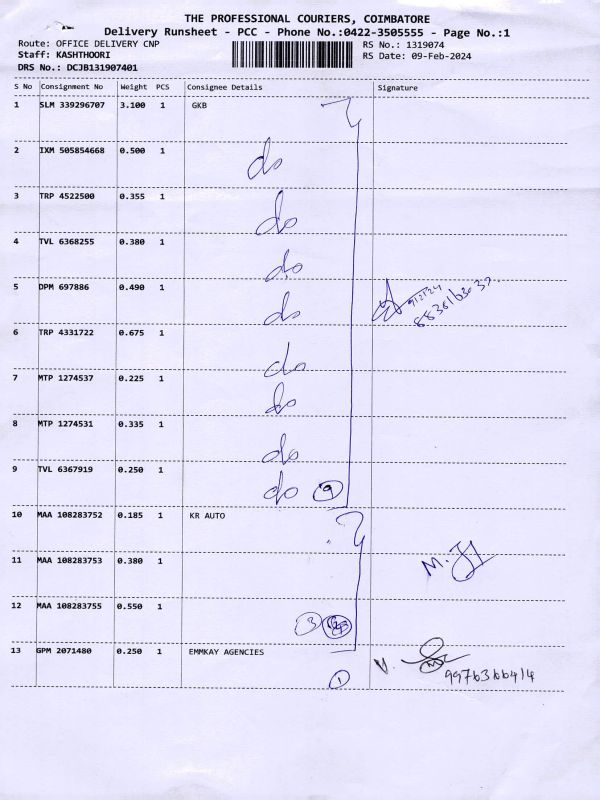 THE PROFESSIONAL COURIERS, COIMBATORE
Delivery Runsheet - PCC - Phone No.:0422-3505555 - Page No.:1
Route: OFFICE DELIVERY CNP RS No.: 1319074
Staff: KASHTHOORI RS Date: 09-Feb-2024
DRS No.: DCJB131907401
S No Consignment No Weight PCS Consignee Details Signature
1 SLM 339296707 3.100 1 GKB
2 IXM 505854668 0.500 1 do
3 TRP 4522500 0.355 1 do
4 TVL 6368255 0.380 1 do
5 DPM 697886 0.490 1 do 9/2/24
6 TRP 4331722 0.675 1 do
7 MTP 1274537 0.225 1 do
8 MTP 1274531 0.335 1 do
9 TVL 6367919 0.250 1 do 9
10 MAA 108283752 0.185 1 KR AUTO
11 MAA 108283753 0.380 1 M.
12 MAA 108283755 0.550 1 3
13 GPM 2071480 0.250 1 EMMKAY AGENCIES V.
1 9976366414